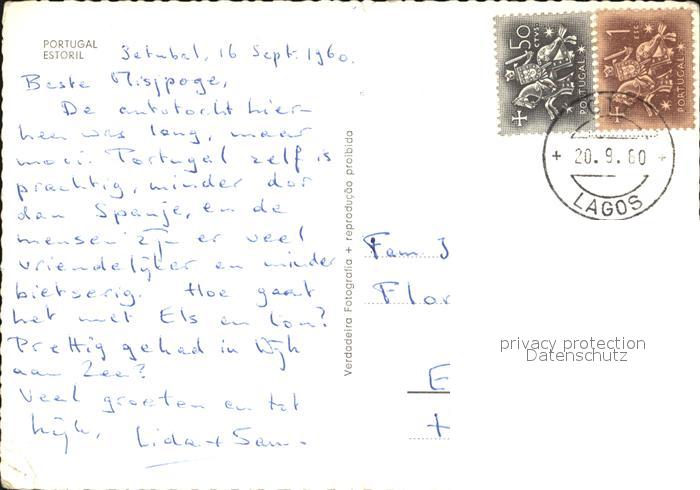 PORTUGAL
ESTORIL
Setubal, 16 Sept. 1960.
Beste Misjpoge,
De autotocht hier-
heen was lang, maar
mooi. Portugal zelf is
prachtig, minder dor
dan Spanje, en de
mensen zijn er veel
vriendelijker en minder
bietserig. Hoe gaat
het met Els en Lon?
Prettig gehad in Wijk
aan Zee?
Veel groeten en tot
kijk, Lida + Sam.
Verdadeira Fotografia + reprodução proibida
50 CTVS.
PORTUGAL
1 ESC.
PORTUGAL
+ 20.9.60 +
LAGOS
Fam J
Flor
E
privacy protection
Datenschutz